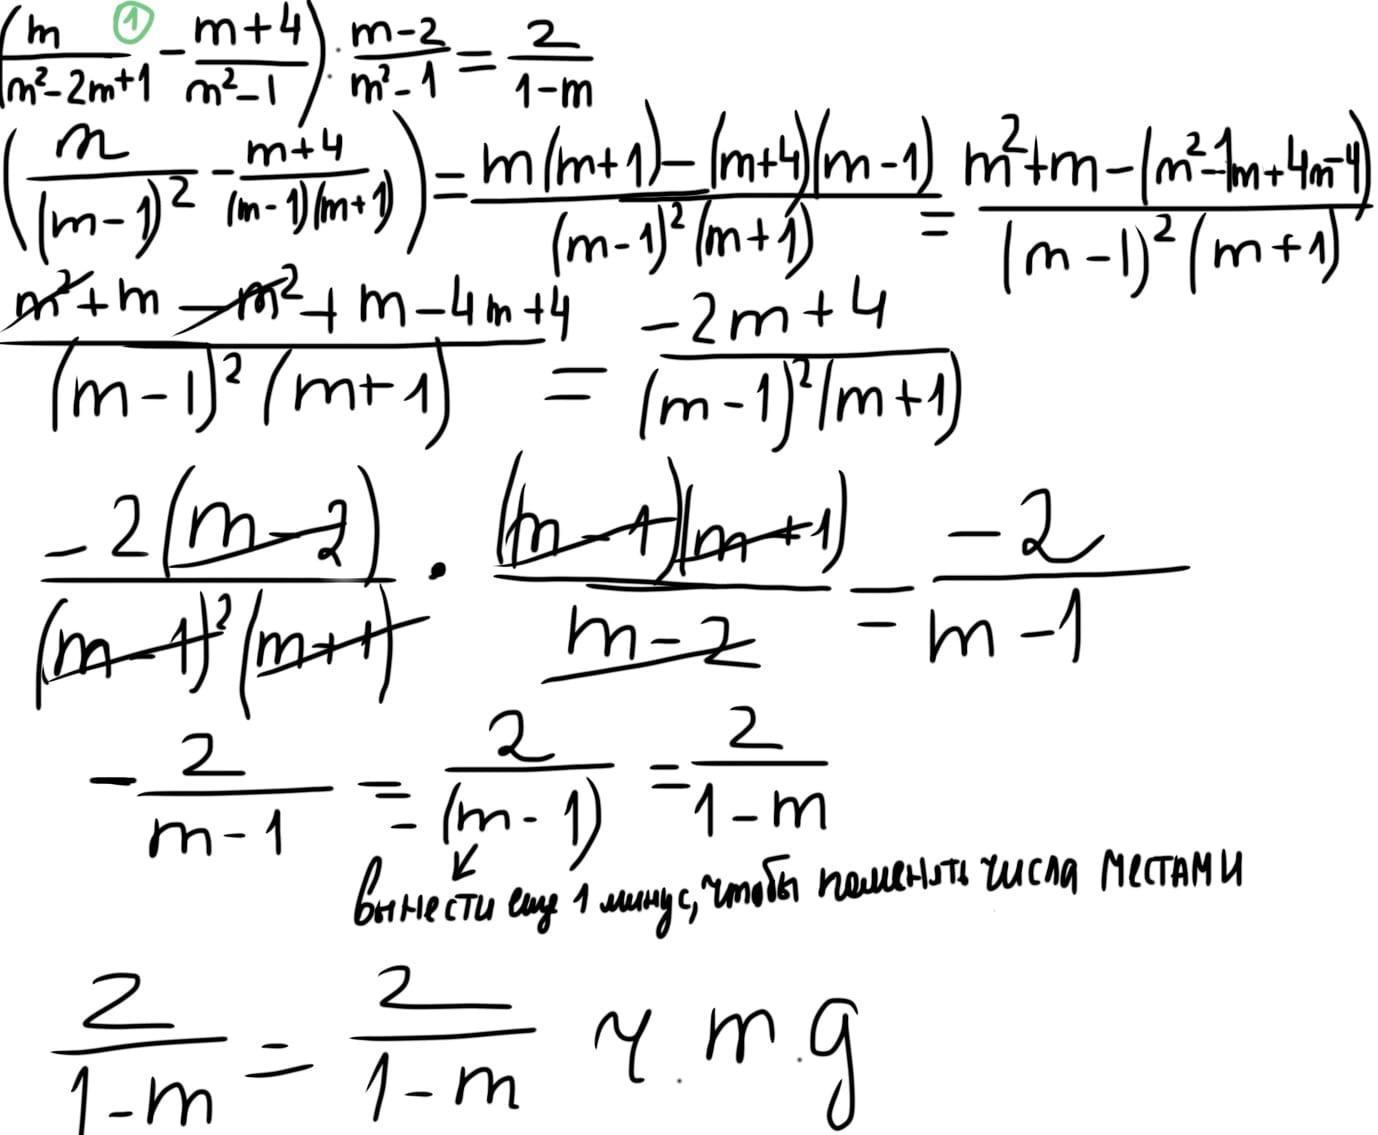 (m/(m²-2m+1) ① - (m+4)/(m²-1)) : (m-2)/(m²-1) = 2/(1-m)
(m/(m-1)² - (m+4)/((m-1)(m+1))) = (m(m+1)-(m+4)(m-1))/((m-1)²(m+1)) = (m²+m-(m²-1m+4m-4))/((m-1)²(m+1))
(m²+m-m²+m-4m+4)/((m-1)²(m+1)) = (-2m+4)/((m-1)²(m+1))
(-2(m-2))/((m-1)²(m+1)) · ((m-1)(m+1))/(m-2) = (-2)/(m-1)
-2/(m-1) = 2/(-(m-1)) = 2/(1-m)
вынести еще 1 минус, чтобы поменять числа местами
2/(1-m) = 2/(1-m) ч.т.д